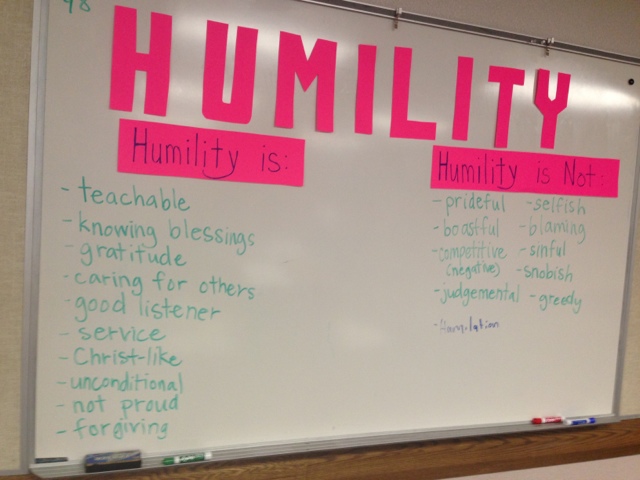 98
HUMILITY
Humility is:
- teachable
- knowing blessings
- gratitude
- caring for others
- good listener
- service
- Christ-like
- unconditional
- not proud
- forgiving
Humility is Not:
- prideful
- boastful
- competitive
(negative)
- judgemental
- selfish
- blaming
- sinful
- snobish
- greedy